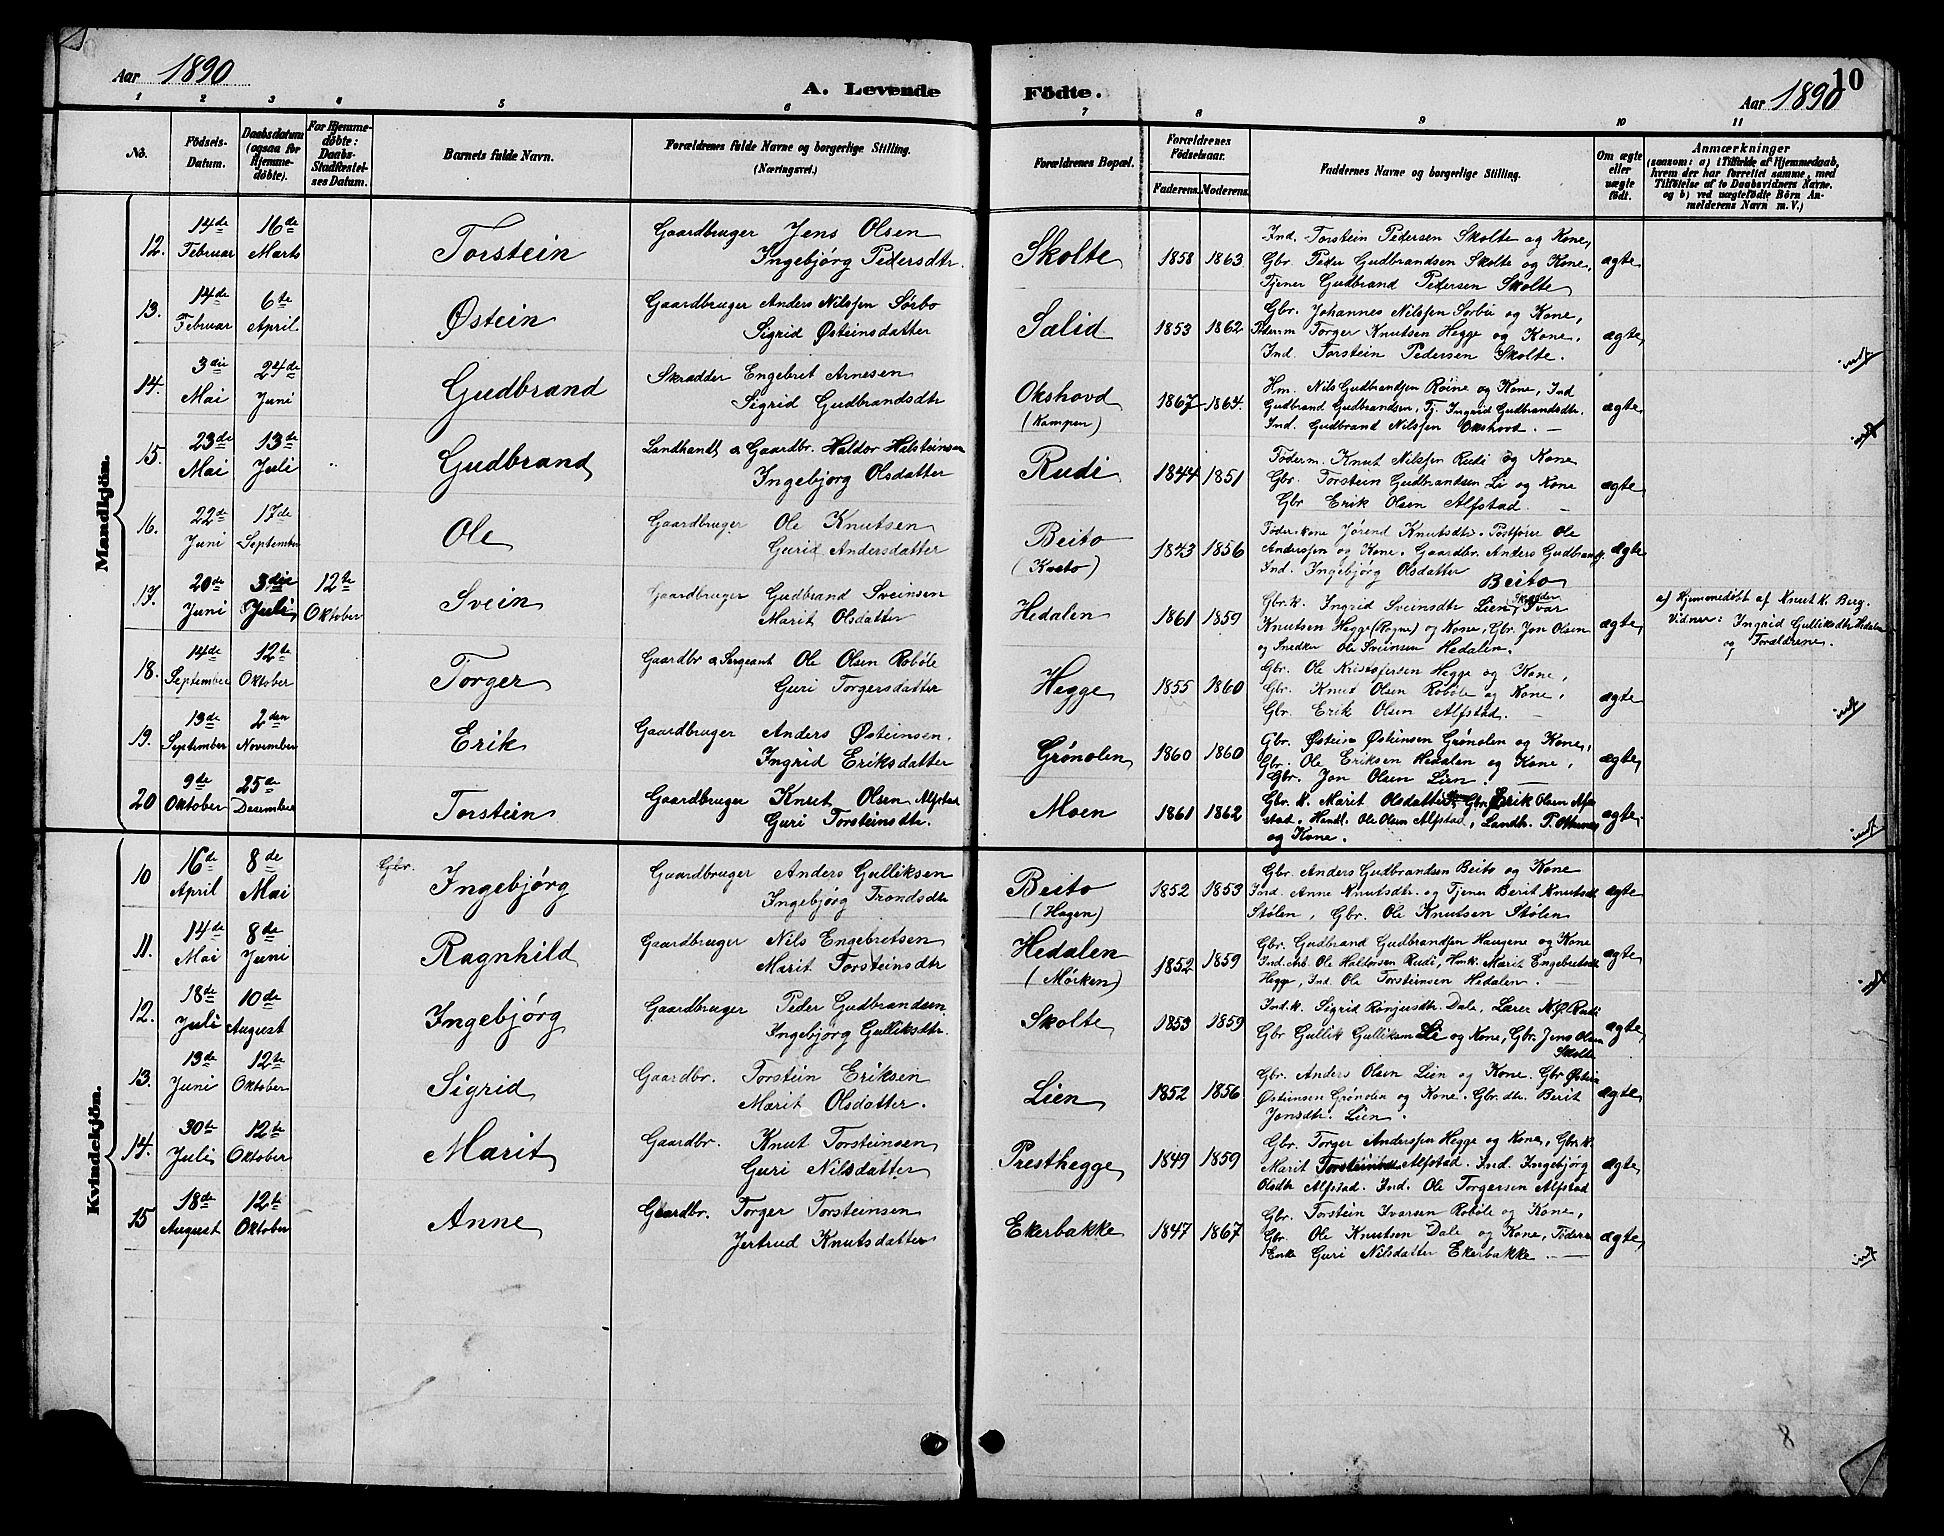 Aar 1890
A. Levende Fødte.
Aar 1890
10
1 2 3 4 5 6 7 8 9 10 11
No.
Fødsels-Datum.
Daabsdatum (ogsaa for Hjemmedøbte).
For Hjemmedøbte: Daabs-Stadfæstelses Datum.
Barnets fulde Navn.
Forældrenes fulde Navne og borgerlige Stilling. (Næringsvei.)
Forældrenes Bopæl.
Forældrenes Fødselsaar.
Faderens. Moderens.
Faddernes Navne og borgerlige Stilling.
Om ægte eller uægte født.
Anmærkninger
(saasom: a) i Tilfælde af Hjemmedaab, hvem der har forrettet samme, med Tilføielse af to Daabsvidners Navne. og b) ved uægtefødte Børn Anmelderens Navn m. V.)
Mandkjøn.
12. 14de Februar 16de Marts Torstein
Gaardbruger Jens Olsen
Ingebjørg Pedersdtr.
Skolte 1858 1863
Ind. Torstein Pedersen Skolte og Kone,
Gbr. Peder Gudbrandsen Skolte og Kone,
Tjener Gudbrand Pedersen Skolte
ægte
13. 14de Februar 6te April Østein
Gaardbruger Anders Nilssen Sørbo
Sigrid Østeinsdatter
Sælid 1853 1862
Gbr. Johannes Nilssen Sørbu og Kone,
Føderm Torger Knutsen Hegge og Kone.
Ind. Torstein Pedersen Skolte.
ægte
indf
14. 3die Mai 24de Juni Gudbrand
Skrædder Engebret Arnesen
Sigrid Gudbrandsdtr
Okshovd (Kampen) 1867 1864.
Hm. Nils Gudbrandsen Røine og Kone, Ind
Gudbrand Gudbrandsen, Tj. Ingrid Gudbrandsdtr.
Ind. Gudbrand Nilssen Okshovd.
ægte
indf
15. 23de Mai 13de Juli " Gudbrand
Landhandl. & Gaardbr. Haldor Halsteinsen
Ingebjørg Olsdatter
Rudi 1844 1851
Føderm. Knut Nilssen Rudi og Kone
Gbr. Torstein Gudbrandsen Li og Kone
Gbr Erik Olsen Alfstad.
ægte
16. 22de Juni 17de September Ole
Gaardbruger Ole Knutsen
Gurid Andersdatter
Beito 1843 1856
Føderkone Jørend Knutsdtr. Postfører Ole
Anderssen og Kone. Gaardbr. Anders Gudbrands.
Ind. Ingebjørg Olsdatter
Beito
ægte
17. 20de Juni 3die Juli 12te Oktober Svein
Gaardbruger Gudbrand Sveinsen
Marit Olsdatter
Hedalen 1861 1859
Gbr.k. Ingrid Sveinsdtr Lien, Skrædder Ivar
Knutsen Hegge (Rogne) og Kone, Gbr. Jon Olsen
og Snedker Ole Sveinsen Hedalen.
ægte
a) Hjemmedøbt af Knut K. Berg.
Vidner: Ingrid Gulliksdtr Hedalen
og Forældrene.
18. 14de September 12te Oktober Torger
Gaardbr & Sergeant Ole Olsen Robøle
Guri Torgersdatter
Hegge 1855 1860
Gbr. Ole Kristofersen Hegge og Kone,
Gbr. Knut Olsen Robøle og Kone,
Gbr. Erik Olsen Alfstad.
ægte
indf
19. 13de September 2den November Erik
Gaardbruger Anders Østeinsen.
Ingrid Eriksdatter
Grønolen 1860 1860
Gbr. Østein Østeinsen Grønolen og Kone,
Gbr. Ole Eriksen Hedalen og Kone,
Gbr. Jon Olsen Lien.
ægte
20 9de Oktober 25de Desember Torstein
Gaardbruger Knut Olsen Alfstad
Guri Torsteinsdtr.
Moen 1861 1862
Gbr. k. Marit Olsdatter Gbr. Erik Olsen Alfstad.
Handl. Ole Olsen Alfstad, Landh. P.
og Kone.
ægte
indf
Kvindekjøn.
10 16de April 8de Mai Gbr. Ingebjørg
Gaardbruger Anders Gulliksen
Ingebjørg Trondsdtr
Beito (Hagen) 1852 1853
Gbr. Anders Gudbrandsen Beito og Kone
Ind. Anne Knutsdtr. og Tjener Berit Knutsdtr
Stølen, Gbr. Ole Knutsen Stølen
ægte
11. 14de Mai 8de Juni Ragnhild
Gaardbruger Nils Engebretsen
Marit Torsteinsdtr
Hedalen (Mørken) 1852 1859
Gbr. Gudbrand Gudbrandsen Haugene og Kone
Ind. Arb. Ole Haldorsen Rudi, Hmk. Marit Engebretsdtr
Hegge, Ind. Ole Torsteinsen Hedalen.
ægte
indf
12. 18de Juli 10de August Ingebjørg
Gaardbruger Peder Gudbrandsen
Ingebjørg Gulliksdtr.
Skolte 1853 1859
Ind.k. Sigrid Ronjusdtr. Dale, Lærer N.Ø. Rudi
Gbr Gullik Gulliksen Li og Kone, Gbr. Jens Olsen
Skolte
ægte
13. 13de Juni 12te Oktober Sigrid
Gaardbr. Torstein Eriksen
Marit Olsdatter.
Lien 1852 1856
Gbr. Anders Olsen Lien og Kone. Gbr Østein
Østeinsen Grønolen og Kone. Gbr.dtr. Berit
Jonsdtr. Lien.
ægte
14. 30te Juli 12te Oktober Marit
Gaardbr. Knut Torsteinsen
Guri Nilsdatter
Presthegge 1849 1859
Gbr. Torger Anderssen Hegge og Kone, Gbr.k.
Marit Torsteinsdtr Alfstad. Ind. Ingebjørg
Olsdtr Alfstad. Ind. Ole Torgersen Alfstad
ægte
15 18de August 12te Oktober Anne
Gaardbr. Torger Torsteinsen
Jertrud Knutsdatter
Ekerbakke 1847 1867
Gbr. Torstein Ivarsen Robøle og Kone,
Gbr. Ole Knutsen Dale og Kone, Føder
Enke Guri Nilsdatter Ekerbakke
ægte
indf
8